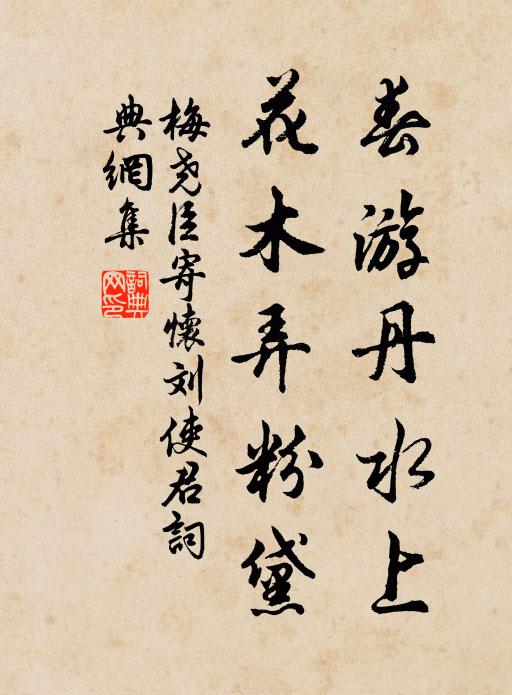 春游丹水上
花木弄粉黛
梅尧臣寄怀刘使君詞
典網集
詞典网印